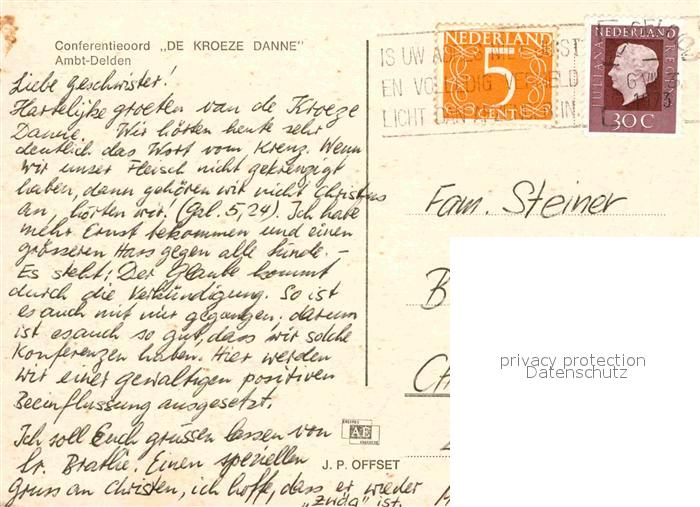 Conferentieoord „DE KROEZE DANNE"
Ambt-Delden
Liebe Geschwister!
Hartelijke groeten van de Kroeze
Danne. Wir hörten heute sehr
deutlich das Wort vom Kreuz. Wenn
wir unser Fleisch nicht gekreuzigt
haben, dann gehören wir nicht Christus
an, hörten wir! (Gal. 5,24). Ich habe
mehr Ernst bekommen und einen
grösseren Hass gegen alle Sünde. –
Es steht: Der Glaube kommt
durch die Verkündigung. So ist
es auch mit mir gegangen. darum
ist es auch so gut, dass wir solche
Konferenzen haben. Hier werden
wir einer gewaltigen positiven
Beeinflussung ausgesetzt.
Ich soll Euch grüssen lassen von
br. Brathe. Einen speziellen
Gruss an Christen, ich hoffe, dass er wieder
„zwäg" ist.
J. P. OFFSET
AE
NEDERLAND
5
CENT
NEDERLAND
JULIANA REGINA
30 C
IS UW
EN VOLLEDIG
LICHT DAN
Fam. Steiner
B
Ch
privacy protection
Datenschutz